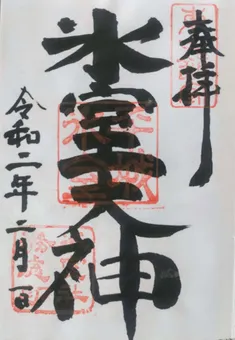 奉拝
氷室天神
令和二年二月一日